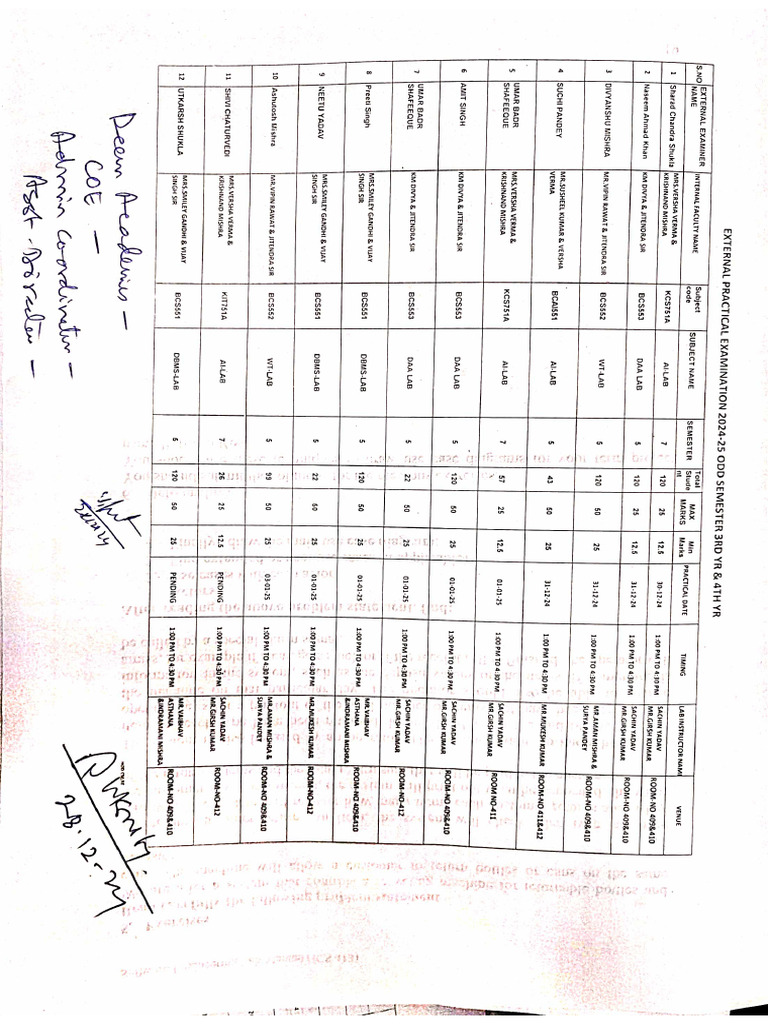 EXTERNAL PRACTICAL EXAMINATION 2024-25 ODD SEMESTER 3RD YR & 4TH YR
S.NO EXTERNAL EXAMINER NAME INTERNAL FACULTY NAME Subject code SUBJECT NAME SEMESTER Total Stude nt MAX MARKS Min Marks PRACTICAL DATE TIMING LAB INSTRUCTOR NAME VENUE
1 Sharad Chandra Shukla MRS.VERSHA VERMA & KRISHNAND MISHRA KCS751A AI-LAB 7 120 25 12.5 30-12-24 1:00 PM TO 4:30 PM SACHIN YADAV MR.GIRSH KUMAR ROOM-NO 409&410
2 Naseem Ahmad Khan KM DIVYA & JITENDRA SIR BCS553 DAA LAB 5 120 25 12.5 31-12-24 1:00 PM TO 4:30 PM SACHIN YADAV MR.GIRSH KUMAR ROOM-NO 409&410
3 DIVYANSHU MISHRA MR.VIPIN RAWAT & JITENDRA SIR BCS552 WT-LAB 5 120 50 25 31-12-24 1:00 PM TO 4:30 PM MR.AMAN MISHRA & SURYA PANDEY ROOM-NO 409&410
4 SUCHI PANDEY MR.SUSHEEL KUMAR & VERSHA VERMA BCAI551 AI-LAB 5 43 50 25 31-12-24 1:00 PM TO 4:30 PM MR.MUKESH KUMAR ROOM-NO 411&412
5 UMAR BADR SHAFEEQUE MRS.VERSHA VERMA & KRISHNAND MISHRA KCS751A AI-LAB 7 57 25 12.5 01-01-25 1:00 PM TO 4:30 PM SACHIN YADAV MR.GIRSH KUMAR ROOM NO-411
6 AMIT SINGH KM DIVYA & JITENDRA SIR BCS553 DAA LAB 5 120 50 25 01-01-25 1:00 PM TO 4:30 PM SACHIN YADAV MR.GIRSH KUMAR ROOM-NO 409&410
7 UMAR BADR SHAFEEQUE KM DIVYA & JITENDRA SIR BCS553 DAA LAB 5 22 50 25 01-01-25 1:00 PM TO 4:30 PM SACHIN YADAV MR.GIRSH KUMAR ROOM-NO-412
8 Preeti Singh MRS.SMILEY GANDHI & VIJAY SINGH SIR BCS551 DBMS-LAB 5 120 50 25 01-01-25 1:00 PM TO 4:30 PM MR.VAIBHAV ASTHANA &INDRAMANI MISHRA ROOM-NO 409&410
9 NEETU YADAV MRS.SMILEY GANDHI & VIJAY SINGH SIR BCS551 DBMS-LAB 5 22 50 25 01-01-25 1:00 PM TO 4:30 PM MR.MUKESH KUMAR ROOM-NO-412
10 Ashutosh Mishra MR.VIPIN RAWAT & JITENDRA SIR BCS552 WT-LAB 5 99 50 25 03-01-25 1:00 PM TO 4:30 PM MR.AMAN MISHRA & SURYA PANDEY ROOM-NO 409&410
11 SHIVI CHATURVEDI MRS.VERSHA VERMA & KRISHNAND MISHRA KIT751A AI-LAB 7 26 25 12.5 PENDING 1:00 PM TO 4:30 PM SACHIN YADAV MR.GIRSH KUMAR ROOM-NO-412
12 UTKARSH SHUKLA MRS.SMILEY GANDHI & VIJAY SINGH SIR BCS551 DBMS-LAB 5 120 50 25 PENDING 1:00 PM TO 4:30 PM MR.VAIBHAV ASTHANA &INDRAMANI MISHRA ROOM-NO 409&410
Deen Academics –
COE –
Admin Coordinator –
Asst - Director –
28.12.24